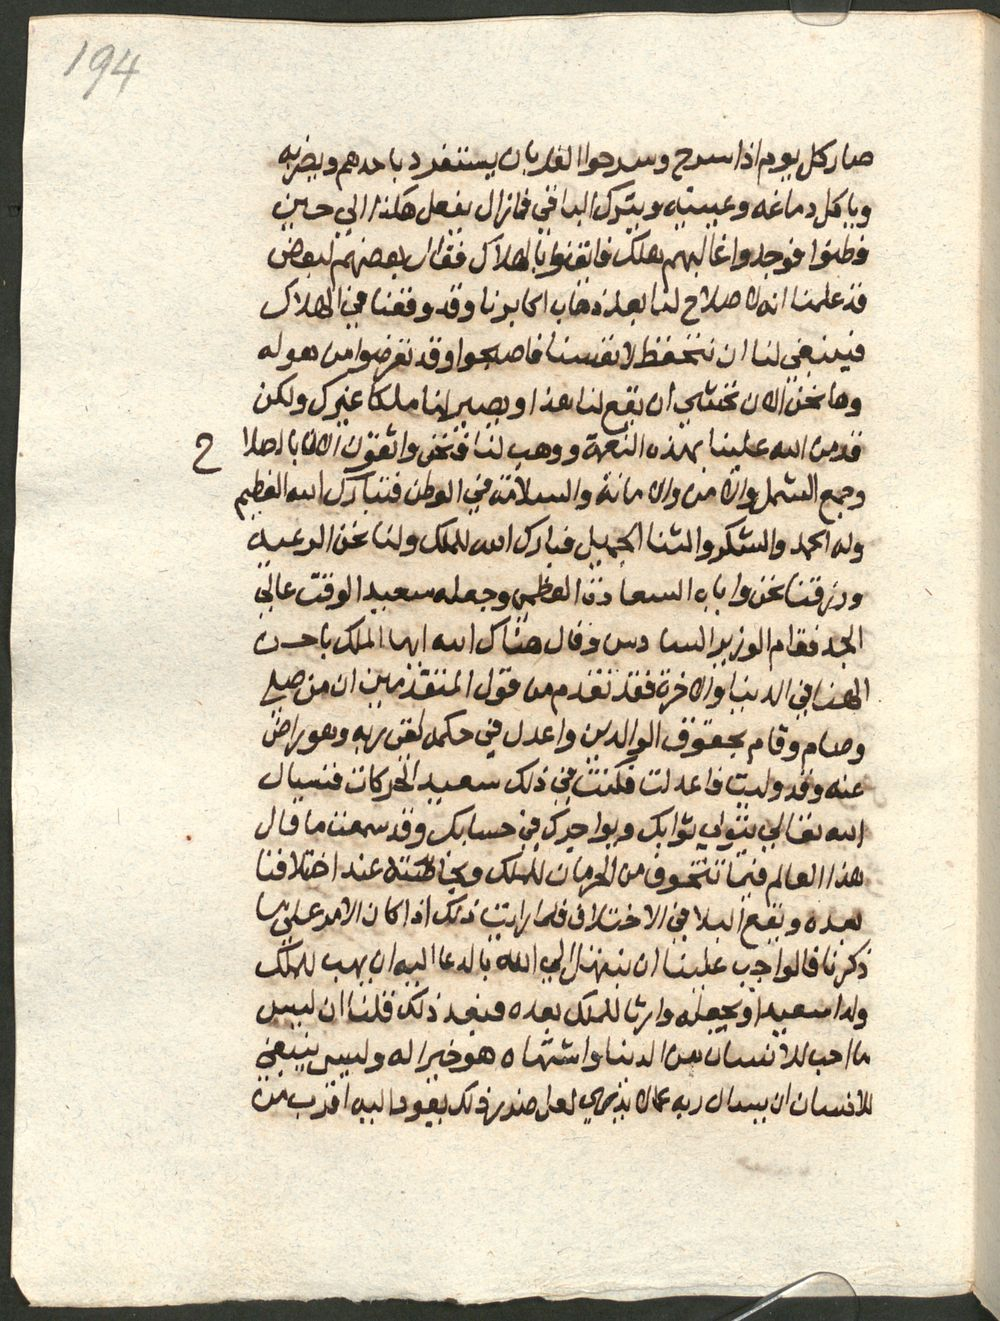 194
صار كل يوم اذا سرح وسرحوا الغربان يستفرد باحدهم ويضربه
وياكل دماغه وعينيه ويترك الباقي فما زال يفعل هكذا الي حين
فطنوا فوجدوا غالبهم هلك فايقنوا بالهلاك فقال بعضهم لبعض
قد علمنا انه لا صلاح لنا بعد ذهاب اكابرنا وقد وقعنا في الهلاك
فينبغي لنا ان نتحفظ لانفسنا فاصبحوا وقد تفرضوا من هوله
وها نحن الان نخشي ان يقع لنا هذا ويصير لنا ملكا غيرك ولكن
قد من الله علينا بهذه النعمة ووهب لنا فنحن واثقون الان بالصلا ح
وجمع الشمل والامن والامانة والسلامة في الوطن فتبارك الله العظيم
وله الحمد والشكر والثنا الجميل فبارك الله للملك ولنا نحن الرعية
ورزقنا نحن واياه السعادة العظمي وجعله سعيد الوقت عالي
الجد فقام الوزير السادس وقال هناك الله ايها الملك باحسن
الهنا في الدنيا والاخرة فقد تقدم من قول المتقدمين ان من صلي
وصام وقام بحقوق الوالدين واعدل في حكمه لقي ربه وهو راض
عنه وقد وليت فاعدلت فكنت في ذلك سعيد الحركات فنسال
الله تعالي يتولي ثوابك ويواجرك في حسابك وقد سمعت ما قال
هذا العالم فيما نتخوف من الحرمان للملك ومخاطبته عند اختلافنا
بعده ويقع البلا في الاختلاف فلما رايت ذلك اذا كان الامر علي ما
ذكرنا فالواجب علينا ان نبتهل الي الله بالدعا اليه ان يهب للملك
ولدا سعيدا ويجعله وارثا للملك بعده فبعد ذلك قلنا ان ليس
ما احب للانسان من الدنيا واشتهاه هو خير اله وليس ينبغي
للانسان ان يسال ربه عما لا يدري لعل ضرر ذلك يعود اليه اقرب من